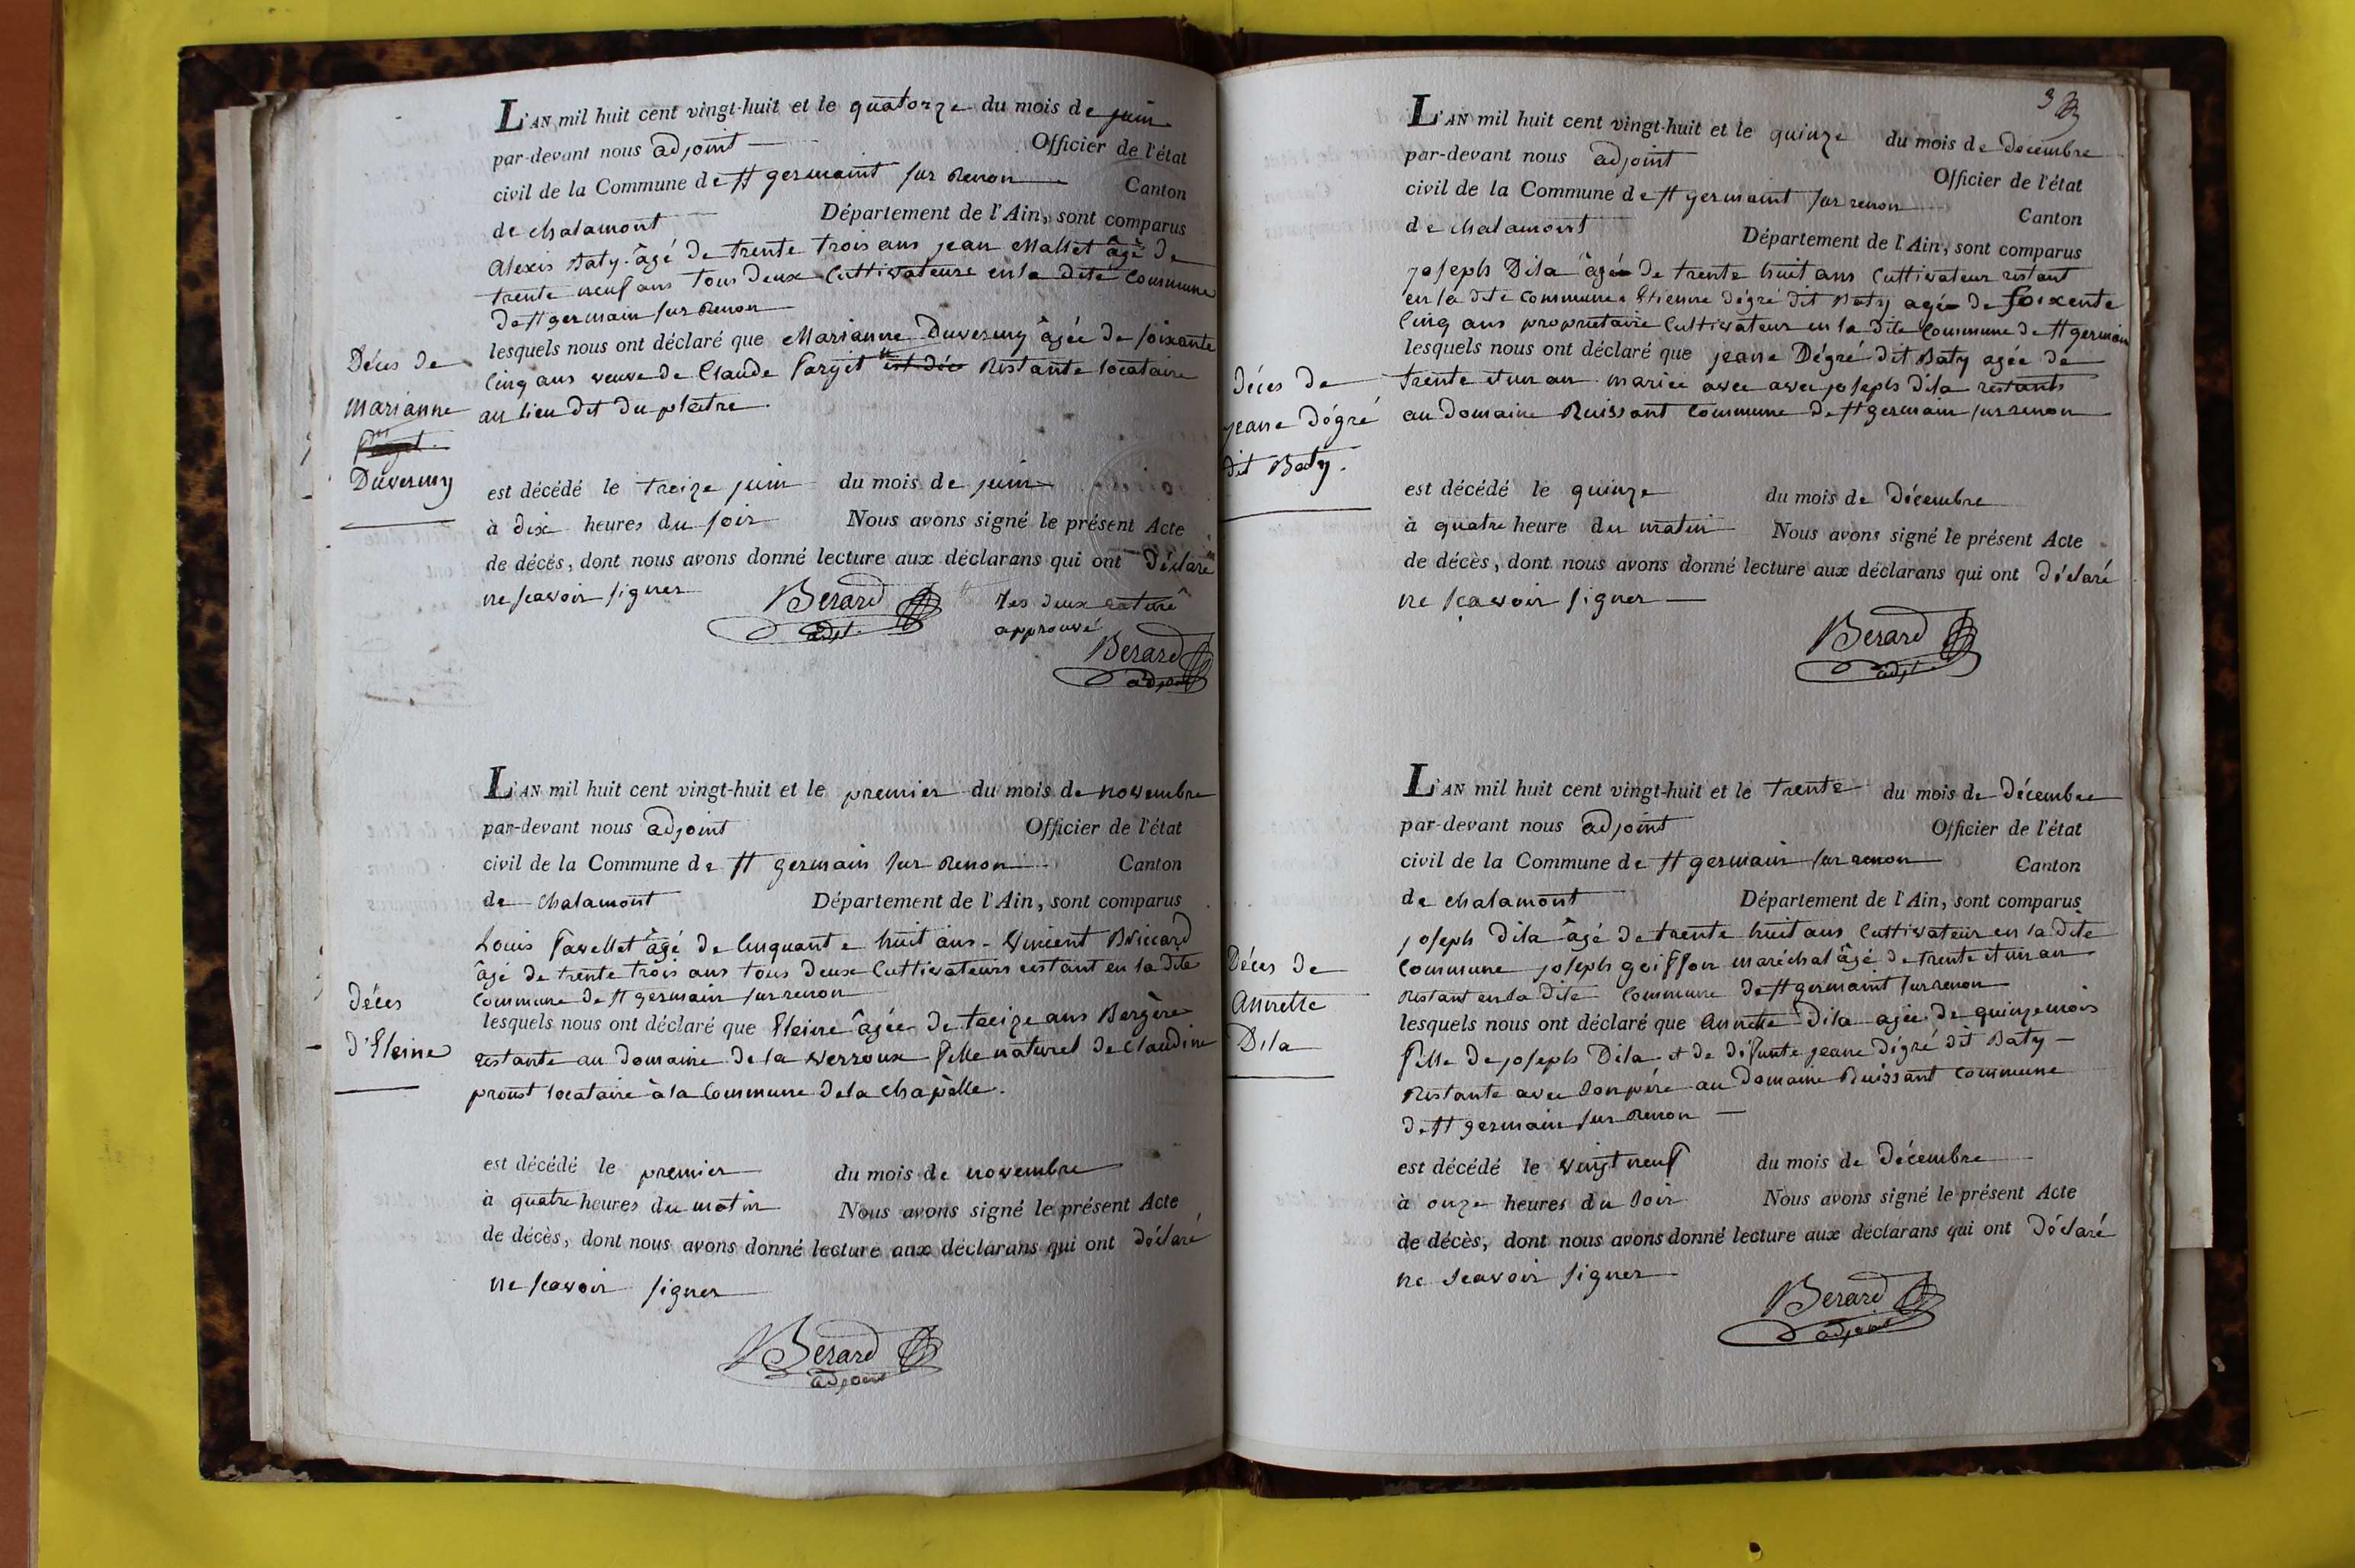 L'AN mil huit cent vingt-huit et le quatorze du mois de juin
par-devant nous adjoint Officier de l'état
civil de la Commune de st germaint sur Renon Canton
de chalamont Département de l'Ain, sont comparus
Alexis Baty âgé de trente trois ans jean Mallet âgé de
trente neuf ans tous deux Cultivateurs en la dite Commune
de st germain sur Renon
lesquels nous ont déclaré que Marianne Duverny âgée de soixante
Cinq ans veuve de Claude est déc Restante locataire
au lieu dit du platre.
Déces de
Marianne
Duverny
est décédé le treize juin du mois de juin
à dix heures du soir Nous avons signé le présent Acte
de décès, dont nous avons donné lecture aux déclarans qui ont Déclaré
ne scavoir signer
Berard
adjt
les deux raturé
approuvé
Berard
adjoint
L'AN mil huit cent vingt-huit et le premier du mois de novembre
par-devant nous adjoint Officier de l'état
civil de la Commune de st germain sur Renon Canton
de chalamont Département de l'Ain, sont comparus
Louis favellet âgé de Cinquante huit ans Vincent Briccard
âgé de trente trois ans tous deux Cultivateurs restant en la dite
Commune de st germain sur renon
lesquels nous ont déclaré que Eleine âgée de treize ans Bergère
restante au domaine de la verroux fille naturel de Claudine
proust locataire à la Commune de la chapèlle.
Déces
d'Eleine
est décédé le premier du mois de novembre
à quatre heures du matin Nous avons signé le présent Acte
de décès, dont nous avons donné lecture aux déclarans qui ont déclaré
ne scavoir signer
Berard
adjoint
3
L'AN mil huit cent vingt-huit et le quinze du mois de Décembre
par-devant nous adjoint Officier de l'état
civil de la Commune de st germaint sur renon Canton
de chalamont Département de l'Ain, sont comparus
joseph Dila âgé de trente huit ans Cultivateur restant
en la dite Commune Etienne dégré dit Baty agée de soixente
Cinq ans propriétaire Cultivateur en la dite Commune de st germain
lesquels nous ont déclaré que jeane Dégré dit Baty agée de
trente et un an mariée avec avec joseph dila restante
au Domaine Ruissant Commune de st germain sur renon
Déces de
jeane dégré
dit Baty.
est décédé le quinze du mois de Décembre
à quatre heure du matin Nous avons signé le présent Acte
de décès, dont nous avons donné lecture aux déclarans qui ont déclaré
ne scavoir signer
Berard
adjt
L'AN mil huit cent vingt-huit et le trente du mois de Décembre
par-devant nous adjoint Officier de l'état
civil de la Commune de st germain sur renon Canton
de chalamont Département de l'Ain, sont comparus
joseph dila âgé de trente huit ans Cultivateur en la dite
Commune joseph goiffon maréchal âgé de trente et un an
Restant en la dite Commune de st germaint sur renon
lesquels nous ont déclaré que Annette Dila agée de quinze mois
fille de joseph Dila et de défunte jeane dégré dit Baty
Restante avec son père au Domaine Ruissant Commune
de st germain sur Renon
Déces de
Annette
Dila
est décédé le vingt neuf du mois de Décembre
à onze heures du soir Nous avons signé le présent Acte
de décès, dont nous avons donné lecture aux déclarans qui ont Déclaré
ne scavoir signer
Berard
adjoint